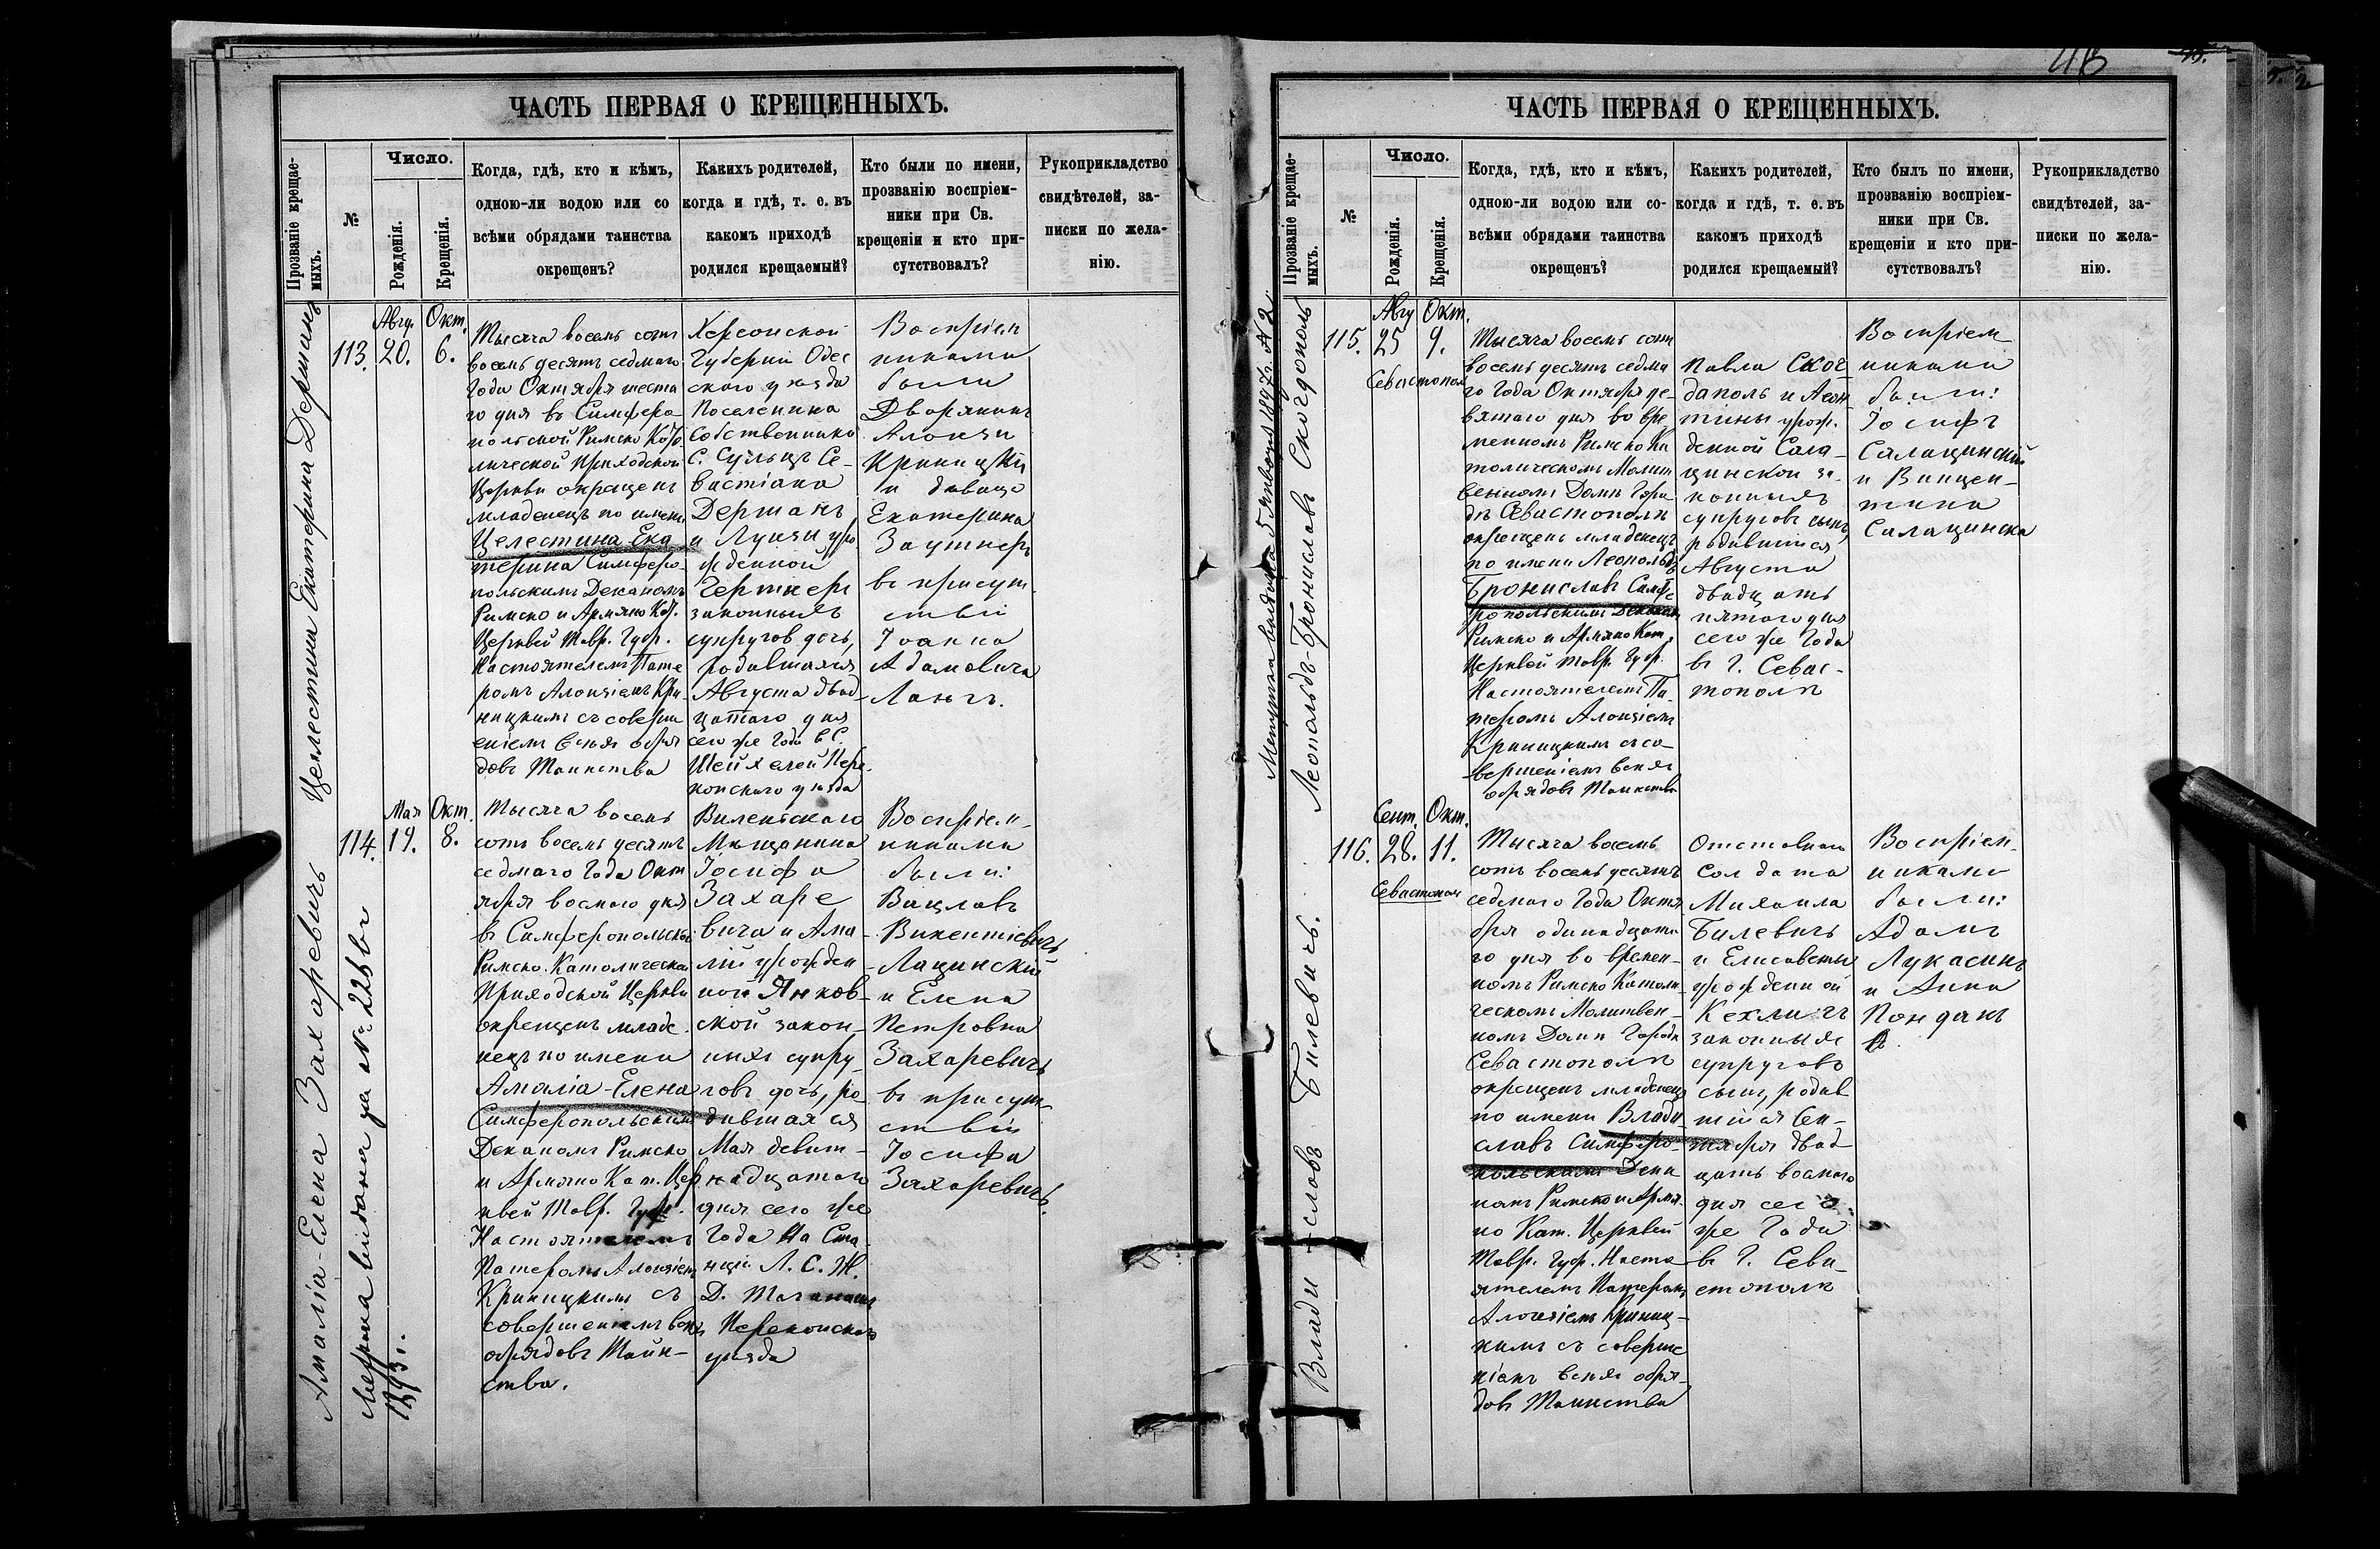 ЧАСТЬ ПЕРВАЯ О КРЕЩЕННЫХЪ.
Прозваніе крещае-
мыхъ.
№
Число.
Рожденія.
Крещенія.
Когда, гдѣ, кто и кѣмъ,
одною-ли водою или со
всѣми обрядами таинства
окрещенъ?
Какихъ родителей,
когда и гдѣ, т. е. въ
какомъ приходѣ
родился крещаемый?
Кто были по имени,
прозванію воспріем-
ники при Св.
крещеніи и кто при-
сутствовалъ?
Рукоприкладство
свидѣтелей, за-
писки по жела-
нію.
Целестина Екатерина Дерманъ
113.
Авгу.
20.
Окт.
6.
Тысяча восемь сотъ
восемь десятъ седмаго
Года Октября шеста
го дня въ Симферо-
польской Римско Кат.
лической Приходской
Церкви окрещенъ
младенецъ по имени
Целестина Ека
терина Симферо-
польскимъ Деканомъ
Римско и Армяно Кат.
Церквей Тавр. Губр.
Настоятелемъ Пате
ромъ Алоизіемъ Кри-
ницкимъ съ соверш
еніемъ всѣхъ обря
довъ Таинства
Херсонской
Губерніи Одес
скаго уѣзда
Поселенина
Собственника
С. Сульцъ Се-
вастіана
Дерманъ
и Луизы уро
жденной
Гертнеръ
законныхъ
супругов дочь,
родившаяся
Августа двад
цатаго дня
сего же Года въ С.
Шейхелей Пере-
копскаго уѣзда
Воспріем
никами
были
Дворянинъ
Алоизи
Криницкій
и дѣвица
Екатерина
Заутнеръ
въ присут-
ствіи
Іоанна
Адамовича
Лангъ.
Амаліа-Елена Захаревичъ
Метрика видана за № 226 въ
1893 г.
114.
Мая
19.
Окт.
8.
Тысяча восемь
сотъ восемь десятъ
седмаго Года Окт
ября восмаго дня
въ Симферопольской
Римско. Католической
Приходской Церкви
окрещенъ младе-
нецъ по имени
Амаліа-Елена
Симферопольскимъ
Деканомъ Римско
и Армяно Кат. Цер
квей Тавр. Губр.
Настоятелемъ
Патеромъ Алоизіемъ
Криницкимъ съ
совершеніемъ всѣхъ
обрядовъ Таин-
ства.
Виленскаго
Мѣщанина
Іосифа
Захаре
вича и Ама-
ліи урожден
ной Янков-
ской закон-
ныхъ супру-
говъ дочь, ро-
дившаяся
Мая девят-
надцатаго
дня сего же
Года На Ста-
нціи Л. С. Ж.
Д.
Перекопскаго
уѣзда
Воспріем-
никами
были:
Вацлавъ
Викентіевичъ
Лащинскій
и Елена
Петровна
Захаревичъ
въ присут-
ствіи
Іосифа
Захаревичъ.
ЧАСТЬ ПЕРВАЯ О КРЕЩЕННЫХЪ.
Прозваніе крещае-
мыхъ.
№
Число.
Рожденія.
Крещенія.
Когда, гдѣ, кто и кѣмъ,
одною-ли водою или со-
всѣми обрядами таинства
окрещенъ?
Какихъ родителей,
когда и гдѣ, т. е. въ
какомъ приходѣ
родился крещаемый?
Кто былъ по имени,
прозванію воспріем-
ники при Св.
крещеніи и кто при-
сутствовалъ?
Рукоприкладство
свидѣтелей, за-
писки по жела-
нію.
Метрика видана 5 Января 1897 г. № 2.
Леопольдъ-Брониславъ Скогдополь
115.
Авгу
25
Окт.
9.
Севастополь
Тысяча восемь сотъ
восемь десятъ седма
го Года Октября де-
вятаго дня во вре
менномъ Римско Ка
толическомъ Молит
венномъ Домѣ Горо
дѣ Севастополѣ
окрещенъ младенецъ
по имени Леопольдъ
Брониславъ Симфе
ропольскимъ Деканом
Римско и Армяно Кат.
Церквей Тавр. Губр.
Настоятелемъ Па-
теромъ Алоизіемъ
Криницкимъ съ со-
вершеніемъ всѣхъ
обрядовъ Таинства
Павла Ског-
даполь и Леон
тины урож.
денной Сала-
щинской за-
конныхъ
супруговъ сынъ,
родившійся
Августа
двадцать
пятаго дня
сего же Года
въ Г. Севас-
тополѣ
Воспріем
никами
были:
Іосифъ
Салащинскій
и Винцен-
тина
Салащинска
Влади-словъ Билевичъ.
116.
Сент.
28.
Окт.
11.
Севастополь
Тысяча восемь
сотъ восемь десятъ
седмаго Года Октя
бря одинадцата
го дня во времен-
номъ Римско Католи
ческомъ Молитвен-
номъ Домѣ Городѣ
Севастополѣ
окрещенъ младенецъ
по имени Влади-
славъ Симферо-
польскимъ Дека
номъ Римско и Армя
но Кат. Церквей
Тавр. Губр. Насто
ятелемъ Патеромъ
Алоизіемъ Криниц-
кимъ съ соверше
ніемъ всѣхъ обря-
довъ Таинства
Отставнаго
Солдата
Михаила
Билевичъ
и Елисаветы
урожденной
Кехлигъ
законныхъ
супруговъ
сынъ, родив
шійся Сен-
тября двад
цать восмаго
дня сего
же Года
въ Г. Сева-
стополѣ
Воспріем-
никами
были:
Адамъ
Лукасинъ
и Анна
Понданъ